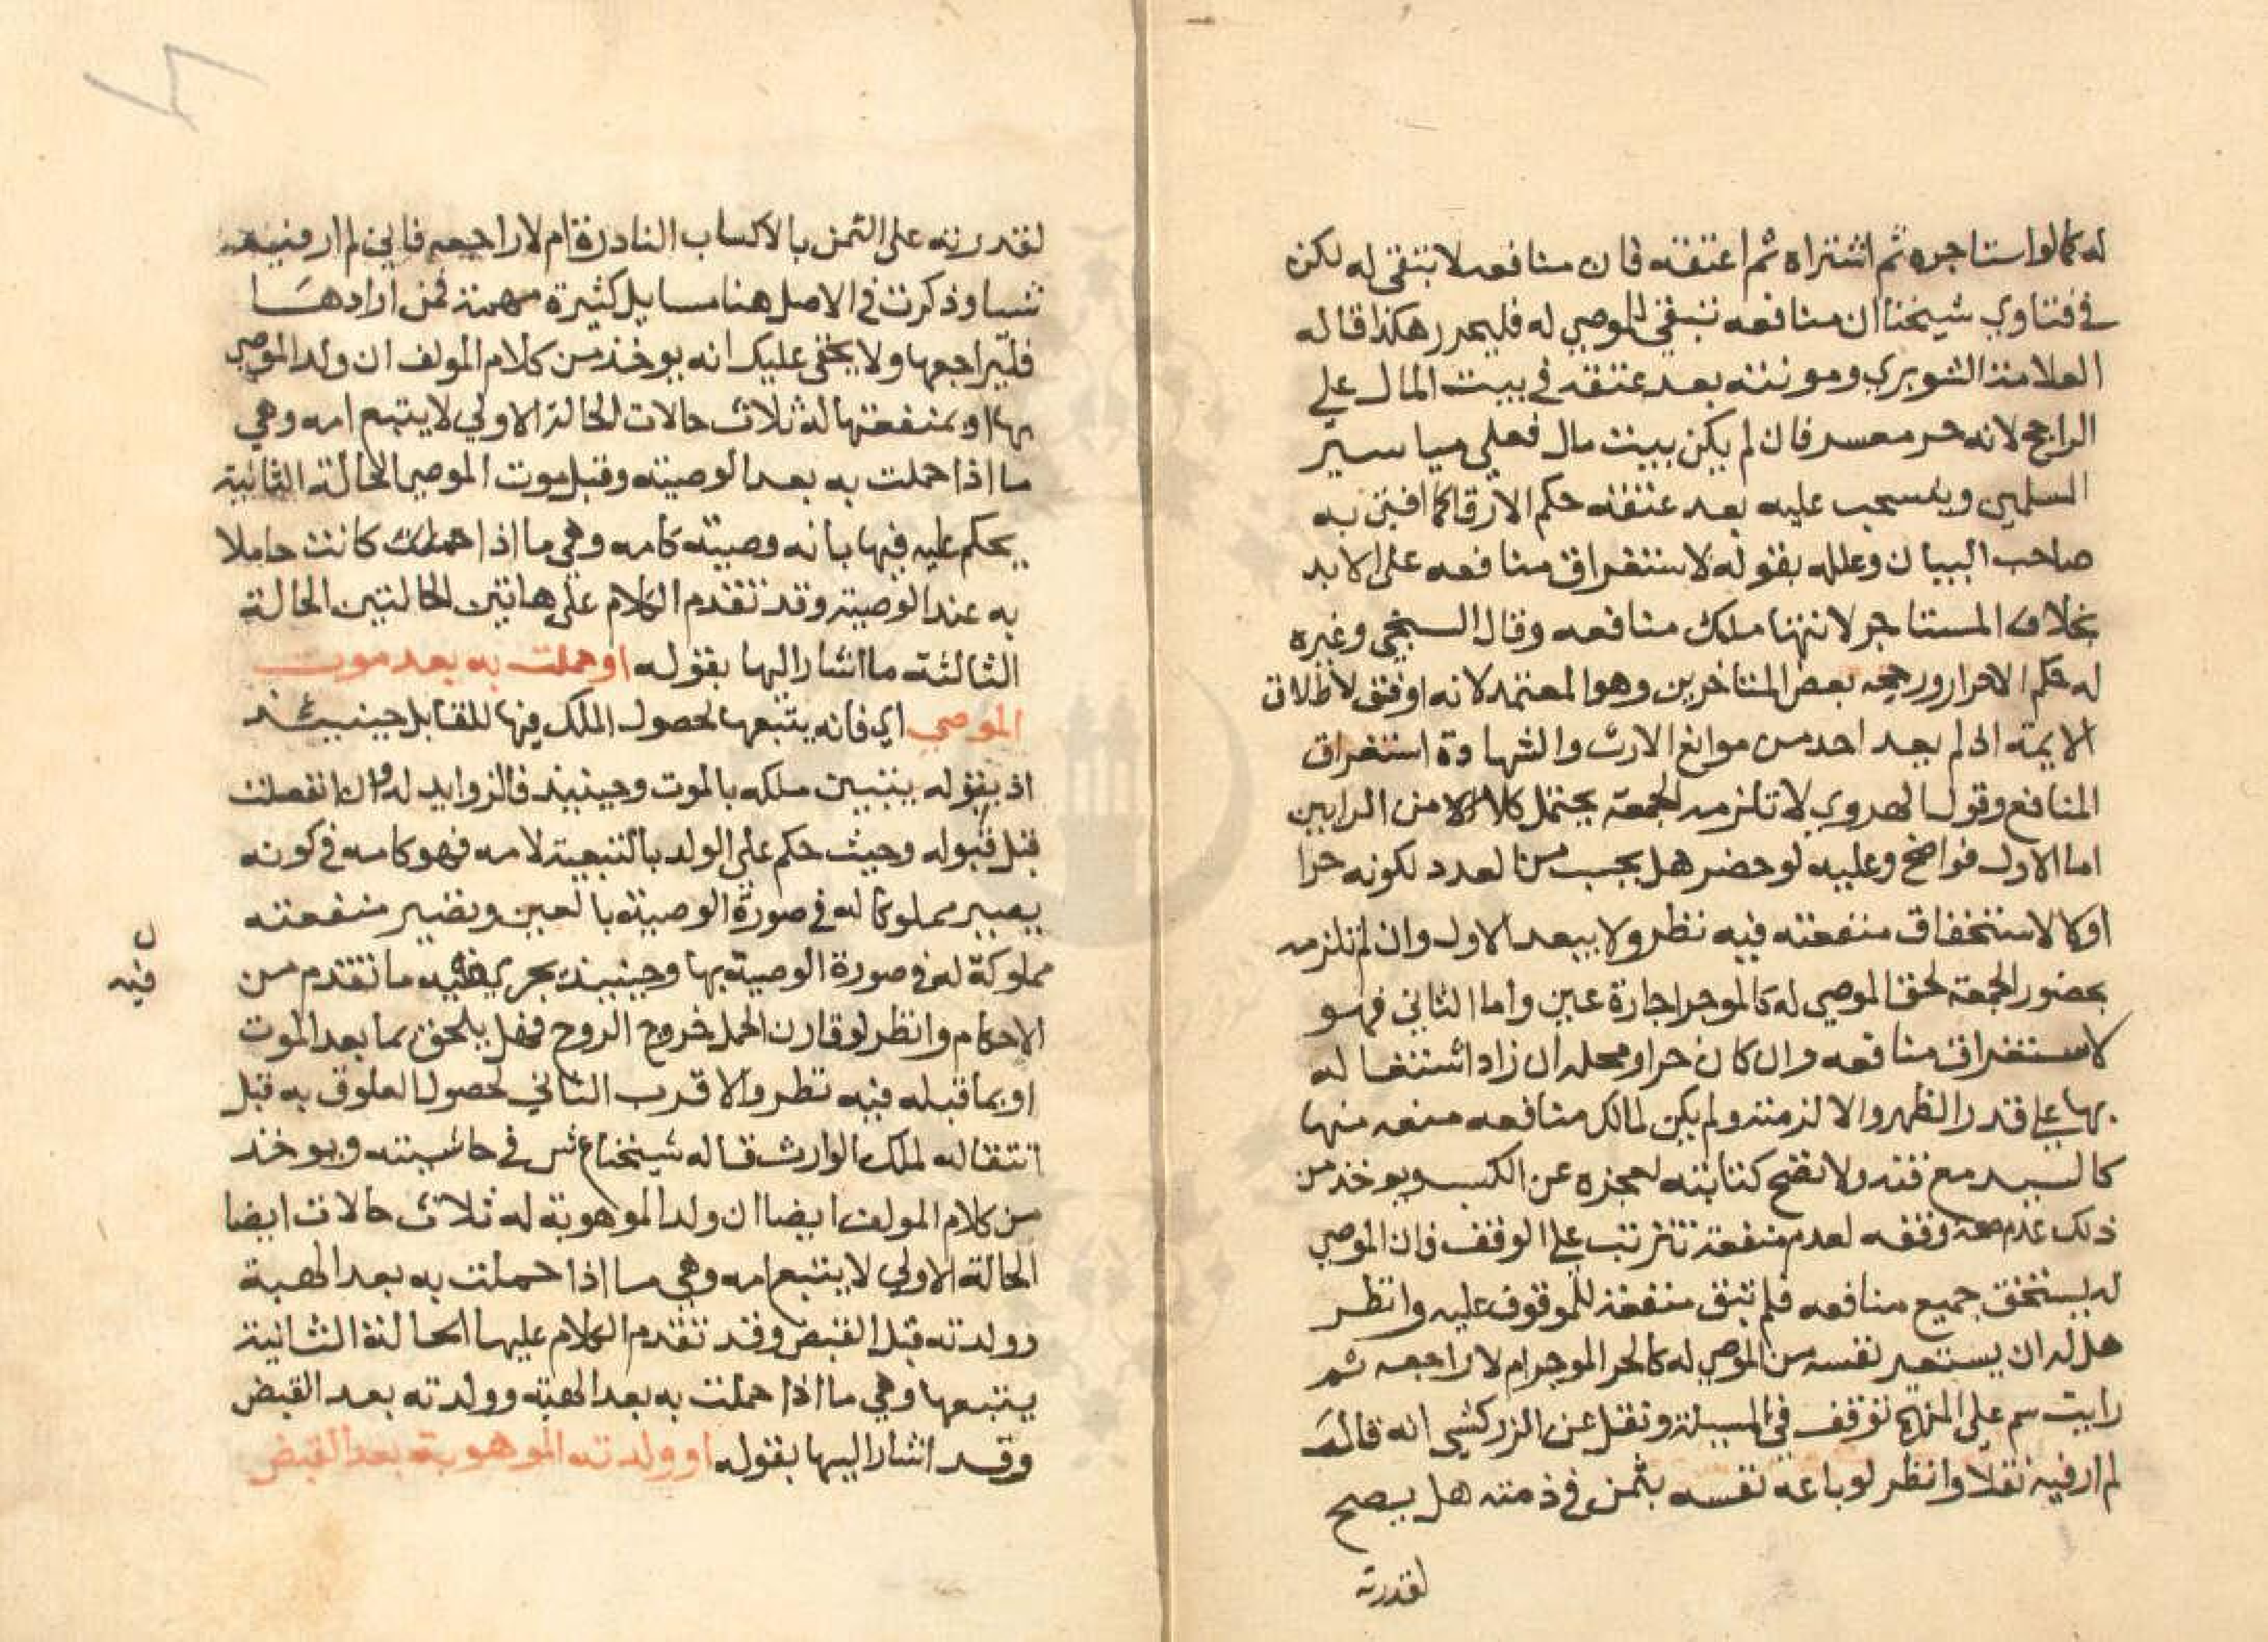 له كما لو استاجره ثم اشتراه ثم اعتقه فان منافعه لا تبقى له لكن
في فتاوي شيخنا ان منافعه تبقي للموصي له فليحرر هكذا قاله
العلامة الشوبري ومونته بعد عتقه في بيت المال علي
الراجح لانه حر معسر فان لم يكن بيت مال فعلي مياسير
المسلمين ويستحب عليه بعد عتقه حكم الارقا كما افتى به
صاحب البيان وعلله بقوله لاستغراق منافعه على الابد
بخلاف المستاجر لانتها ملك منافعه وقال السبخي وغيره
له حكم الاحرار ورجحه بعض المتاخرين وهو المعتمد لانه اوفق لاطلاق
الايمة اذ لم يعد احد من موانع الارث والشهادة استغراق
المنافع وقول الهروي لا تلزمه الجمعة يحتمل كلا من الرايين
اما الاول فواضح وعليه لو حضر هل يحسب من العدد لكونه حرا
او كالاستحقاق منفعته فيه نظر ولا يبعد الاول وان لم تلزمه
بحضور الجمعة لحق الموصي له كالموجر اجارة عين واما الثاني فهو
لاستغراق منافعه وان كان حرا ومحله ان زاد اشتغاله
بها علي قدر الظهر والا لزمته ولم يكن لمالك منافعه منعه منها
كالسيد مع قنه ولا تصح كتابته لعجزه عن الكسب ويوخذ من
ذلك عدم صحة وقفه لعدم منفعة تترتب علي الوقف فان الموصي
له يستحق جميع منافعه فلم تبق منفعة للموقوف عليه وانظر
هل له ان يستعير نفسه من الموصي له كالحر الموجر ام لا راجعه ثم
رايت سم على المنهج توقف في المسيلة ونقل عن الزركشي انه قال
لم ار فيه نقلا وانظر لو باعه نفسه بثمن في ذمته هل يصح
لقدرته
لقدرته على الثمن بالاكساب النادرة ام لا راجعه فاني لم ار فيه
شيا وذكرت في الاصل هنا مسايل كثيرة مهمة فمن ارادها
فليراجعها ولا يخفى عليك انه يوخذ من كلام المولف ان ولد الموصي
بها او بمنفعتها له ثلاث حالات الحالة الاولي لا يتبع امه وهي
ما اذا حملت به بعد الوصية وقبل موت الموصي الحالة الثانية
يحكم عليه فيها بانه وصية كامه وهي ما اذا كانت حاملا
به عند الوصية وقد تقدم الكلام على هاتين الحالتين الحالة
الثالثة ما اشار اليها بقوله او حملت به بعد موت
الموصي اي فانه يتبعها لحصول الملك فيها للقابل حينيئذ
اذ بقبوله يتبين ملكه بالموت وحينيذ فالزوايد له وان انفصلت
قبل قبوله وحيث حكم على الولد بالتبعية لامه فهو كامه في كونه
يصير مملوكا له في صورة الوصية بالعين وتصير منفعته
مملوكة له في صورة الوصية بها وحينيذ يجري فيه ما تقدم من
الاحكام وانظر لو قارن الحمل خروج الروح فهل يلحق بما بعد الموت
او بما قبله فيه نظر والاقرب الثاني لحصول العلوق به قبل
انتقاله لملك الوارث قاله شيخنا ع ش في حاشيته ويوخذ
من كلام المولف ايضا ان ولد الموهوبة له ثلاث حالات ايضا
الحالة الاولي لا يتبع امه وهي ما اذا حملت به بعد الهبة
وولدته قبل القبض وقد تقدم الكلام عليها الحالة الثانية
يتبعها وهي ما اذا حملت به بعد الهبة وولدته بعد القبض
وقد اشار اليها بقوله او ولدته الموهوبة بعد القبض
فيه